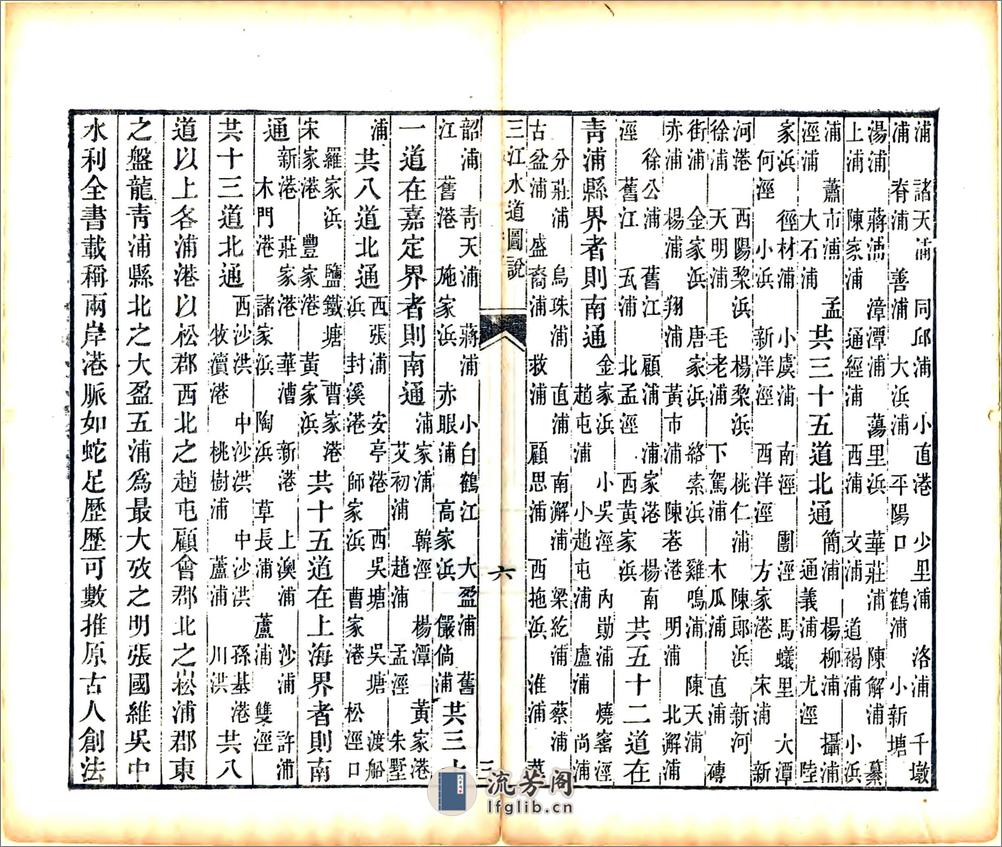 浦 諸天浦 同邱浦 小直港 少里浦 洛浦 千墩
浦 脊浦 善浦 大浜浦 平陽口 鶴浦 小新塘
湯浦 蔣浦 漳潭浦 蕩里浜 華莊浦 陳解浦 蟇
上浦 陳家浦 通經浦 西浦 文浦 道褐浦 小浜
涇浦 蕭市浦 孟
大石浦
共三十五道北通
簡浦 楊柳浦 攝浦
通義浦 尤涇 陸
家浜 徑材浦 小虞浦 南涇 圑涇 馬蟻里 大潭
何涇 小浜 新洋涇 西洋涇 方家港 宋浦 新
河港 西陽棃浜 楊棃浜 桃仁浦 陳郎浜 新河
徐浦 天明浦 毛老浦 下駕浦 木瓜浦 直浦 磚
街浦 金家浜 唐家浜 絡索浜 雞鳴浦 陳天浦
赤浦 楊浦 翔浦 黃市浦 陳港 明浦 北解浦
徐公浦 舊江 顧浦 浦家港 楊南
涇 舊江 瓦浦 北孟涇 西黃家浜
共五十二道在
青浦縣界者則南通
金家浜 小吳涇 內勛浦 燒窰涇
趙屯浦 小趙屯浦 盧浦 尚
分莊浦 烏珠浦 直浦 南解浦 梁紇浦 蔡浦
古盆浦 盛裔浦 救浦 顧思浦 西拖浜 淮浦
三江水道圖說 六 三
韶浦 青天浦 蔣浦 小白鶴江 大盈浦 舊
江 舊港 施家浜 赤眼浦 高家浜 儼倘浦
共三十
一道在嘉定界者則南通
浦家浦 韓涇 楊潭 黃家港
艾初浦 趙浦 孟涇 朱墅
浦
共八道北通
西張浦 安亭港 西吳塘 吳塘 渡船
浜 封溪港 師家浜 曹家港 松江口
羅家浜 鹽鐵塘 曹家港
宋家港 豐家港 黃家浜
共十五道在上海界者則南
通
新港 莊家港 華漕 新港 上澳浦 沙浦 許浦
木門港 諸家浜 陶浜 草長浦 蘆浦 雙涇
共十三道北通
西沙洪 中沙洪 中沙洪 孫基港
牧瀆港 桃樹浦 蘆浦 川洪
共八
道以上各浦港以松郡西北之趙屯顧會郡北之崧浦郡東
之盤龍青浦縣北之大盈五浦爲最大攷之明張國維吳中
水利全書載稱兩岸港脈如蛇足歷歷可數推原古人創法
流芳阁
lfglib.cn